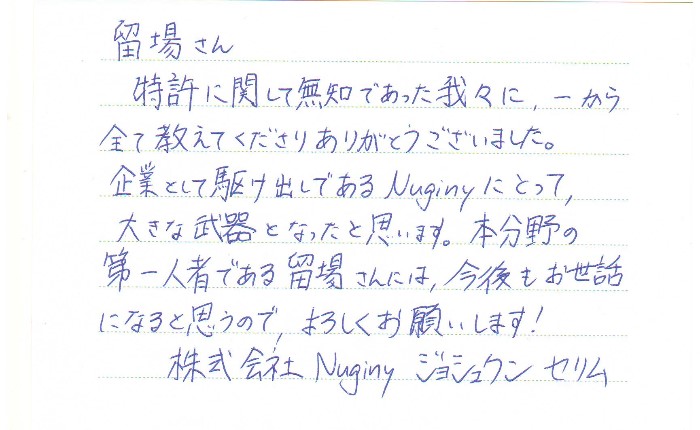 留場さん
特許に関して無知であった我々に、一から
全て教えてくださりありがとうございました。
企業として駆け出しであるNuginyにとって、
大きな武器となったと思います。本分野の
第一人者である留場さんには、今後もお世話
になると思うので、よろしくお願いします!
株式会社 Nuginy ジョシュクン セリム